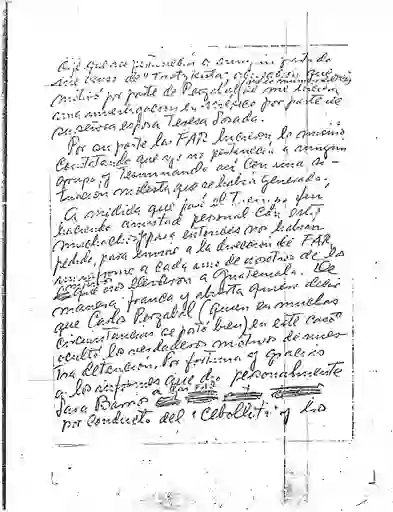 dije que no pertenecía a ningún partido
de "Trotzkista",
por parte de Pezzabel se me hiciera
una investigación en México por parte de
su señora esposa Teresa Losada.
Por su parte las FAR hicieron lo mismo,
constatando que yo no pertenecía a ningún
grupo y terminando así con una si-
tuación molesta que se había generado.
A medida que pasó el tiempo fui
haciendo amistad personal con estos
muchachos, para entonces nos habían
pedido, para enviar a la dirección de FAR,
un informe a cada uno de nosotros de los
que nos llevaron a Guatemala. De
manera franca y abierta quiero decir
que Carlos Pezzabel (quien en muchas
circunstancias se portó bien) en este caso
ocultó los verdaderos motivos de nues-
tra detención. Por fortuna y gracias
a los informes que dio personalmente
Sara Barrios
por conducto del "Cebollita" y los